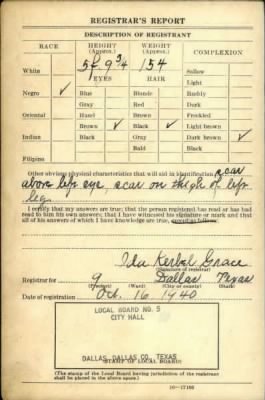 REGISTRAR'S REPORT
DESCRIPTION OF REGISTRANT
RACE HEIGHT (Approx.) WEIGHT (Approx.) COMPLEXION
5f 9 3/4 154
White EYES HAIR Sallow
Light
Negro ✓ Blue Blonde Ruddy
Gray Red Dark
Oriental Hazel Brown Freckled
Brown ✓ Black ✓ Light brown
Indian Black Gray Dark brown ✓
Bald Black
Filipino
Other obvious physical characteristics that will aid in identification scar
above left eye, scar on thigh of left
leg.
I certify that my answers are true; that the person registered has read or has had
read to him his own answers; that I have witnessed his signature or mark and that
all of his answers of which I have knowledge are true, except as follows:
Ida Kerbel Grace
(Signature of registrar)
Registrar for 9 Dallas Texas
(Precinct) (Ward) (City or county) (State)
Date of registration Oct. 16 1940
LOCAL BOARD NO. 5
CITY HALL
DALLAS, DALLAS CO. TEXAS
(STAMP OF LOCAL BOARD)
(The stamp of the Local Board having jurisdiction of the registrant
shall be placed in the above space.)
16—17105